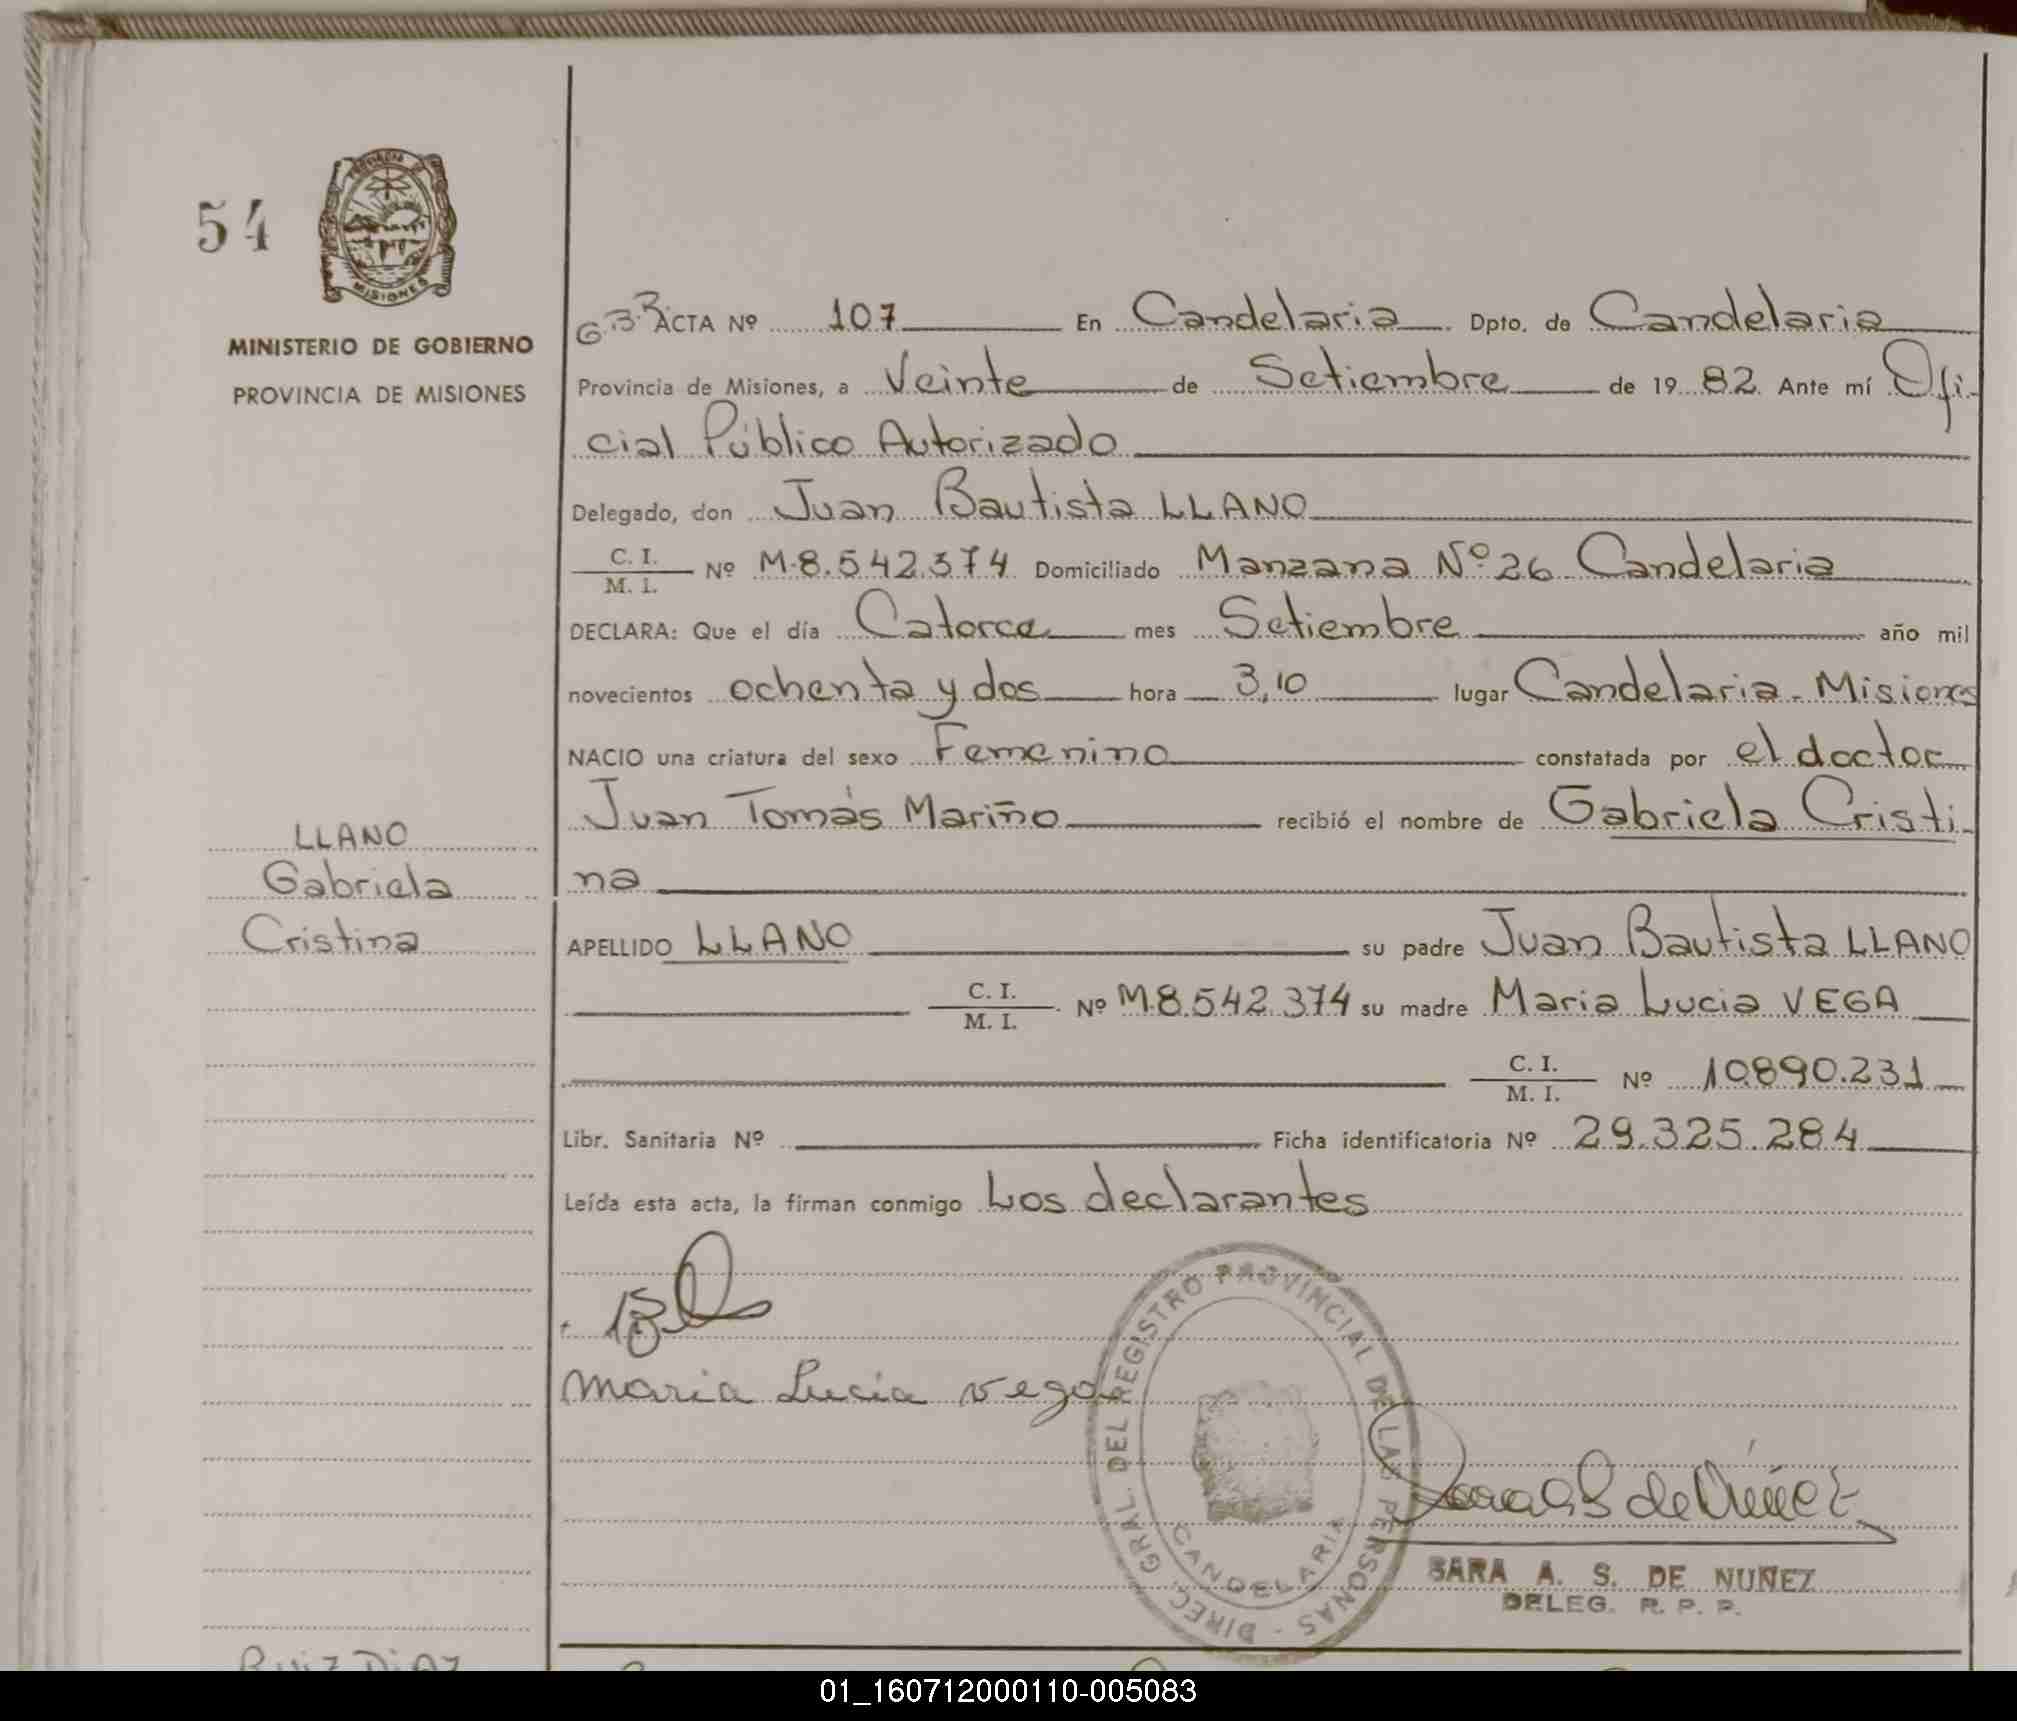 54
PROVINCIA DE
MISIONES
MINISTERIO DE GOBIERNO
PROVINCIA DE MISIONES
ACTA Nº 107 En Candelaria Dpto. de Candelaria
Provincia de Misiones, a Veinte de Setiembre de 1982. Ante mí Ofi-
cial Público Autorizado
Delegado, don Juan Bautista LLANO
C. I.
M. I.
Nº M.8.542.374 Domiciliado Manzana Nº 26 Candelaria
DECLARA: Que el día Catorce mes Setiembre año mil
novecientos ochenta y dos hora 3,10 lugar Candelaria - Misiones
NACIO una criatura del sexo Femenino constatada por el doctor
Juan Tomás Mariño recibió el nombre de Gabriela Cristi-
na
LLANO
Gabriela
Cristina
APELLIDO LLANO su padre Juan Bautista LLANO
C. I.
M. I.
Nº M.8.542.374 su madre Maria Lucia VEGA
C. I.
M. I.
Nº 10.890.231
Libr. Sanitaria Nº Ficha identificatoria Nº 29.325.284
Leída esta acta, la firman conmigo Los declarantes
Maria Lucia Vega
DIREC. GRAL. DEL REGISTRO PROVINCIAL DE LAS PERSONAS -
CANDELARIA
SARA A. S. DE NUÑEZ
DELEG. R. P. P.
RUIZ DIAZ
01_160712000110-005083